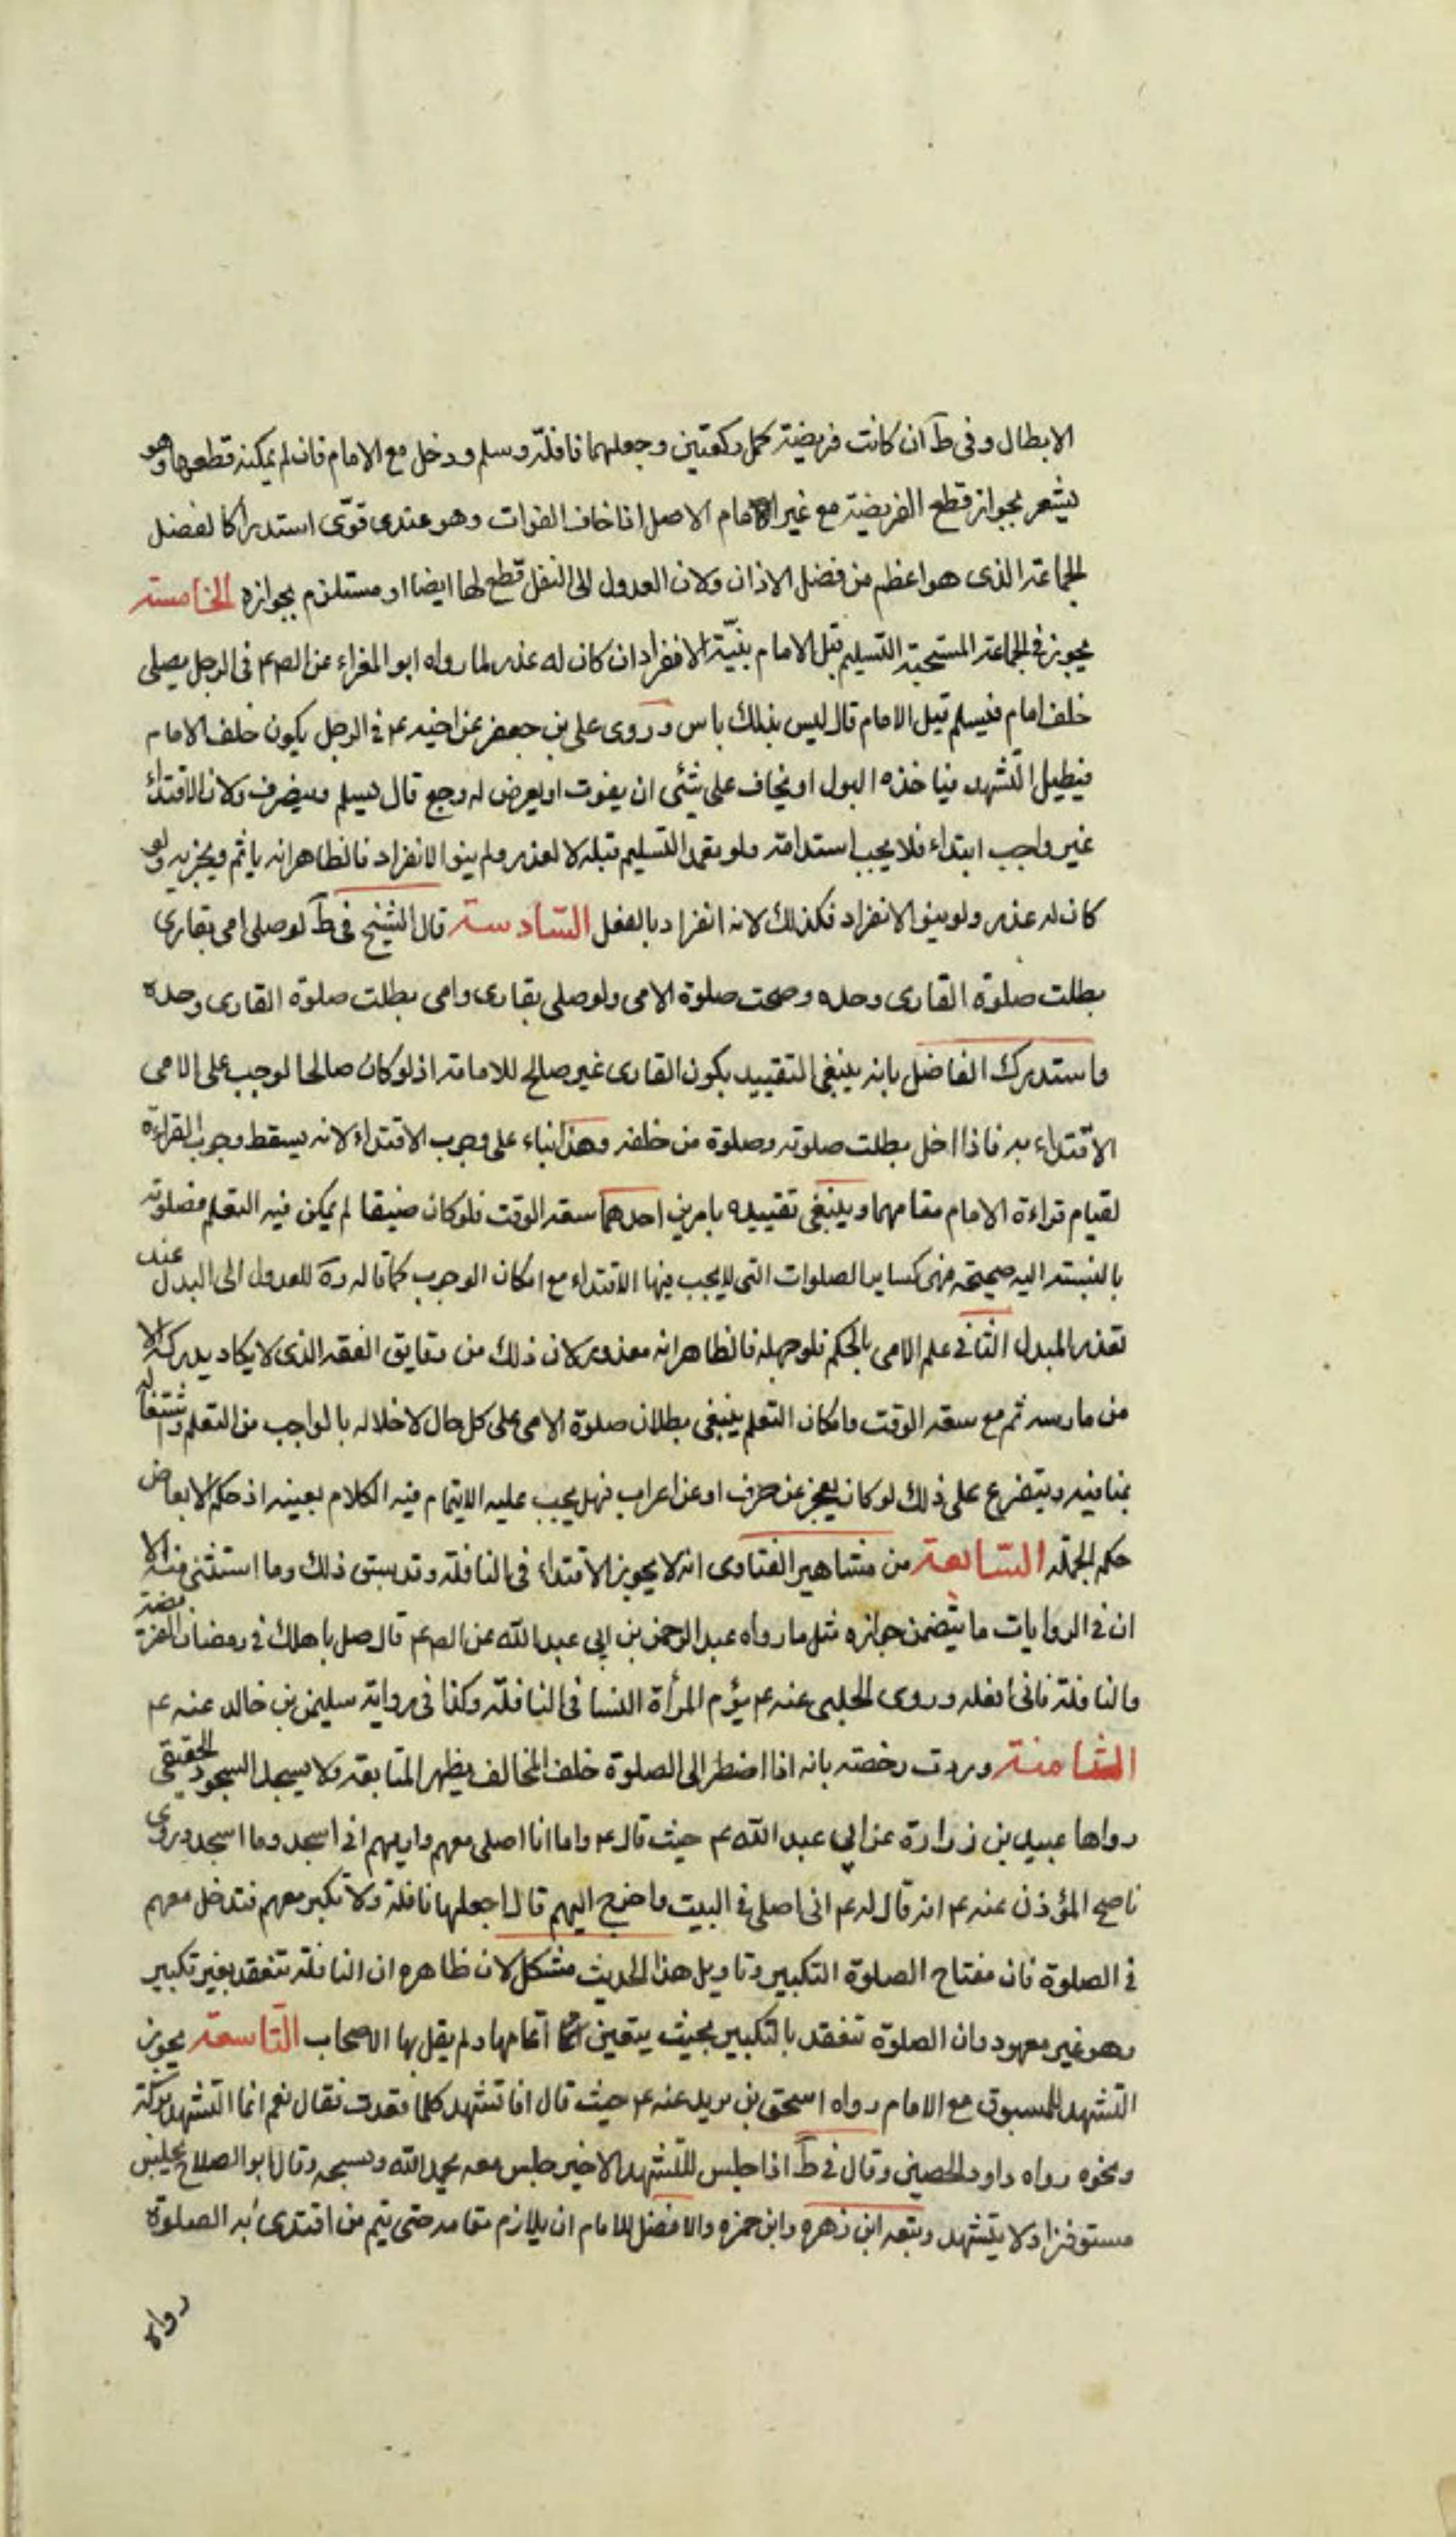 الابطال وفى ط ان كانت فريضة كمل ركعتين وجعلهما نافلة وسلم ودخل مع الامام فان لم يمكنه قطعها وهو
يشعر بجواز قطع الفريضة مع غير الامام الاصل اذا خاف الفوات وهو عندى قوى استدراكا لفضل
الجماعة الذى هو اعظم من فضل الاذان ولان العدول الى النفل قطع لها ايضا او مستلزم بجوازه الخامسة
يجوز فى الجماعة المستحبة التسليم قبل الامام بنية الانفراد ان كان له عذر لما رواه ابو المغراء عن الص ع فى الرجل يصلى
خلف امام فيسلم قبل الامام قال ليس بذلك باس وروى على بن جعفر عن اخيه ع فى الرجل يكون خلف الامام
فيطيل التشهد فياخذه البول او يخاف على شئى ان يفوت او يعرض له وجع قال يسلم وينصرف ولان الاقتداء
غير واجب ابتداء فلا يجب استدامته ولو تعمد التسليم قبله لا لعذر ولم ينو الانفراد فالظاهر انه ياثم ويجزيه ولو
كان له عذر ولو ينو الانفراد فكذلك لانه انفراد بالفعل السادسة قال الشيخ فى ط لو صلى امى بقارى
بطلت صلوة القارى وحده وصحت صلوة الامى ولو صلى بقارى وامى بطلت صلوة القارى وحده
واستدرك الفاضل بانه ينبغى التقييد بكون القارى غير صالح للامامة اذ لو كان صالحا لوجب على الامى
الاقتداء به فاذا اخل بطلت صلوته وصلوة من خلفه وهذا بناء على وجوب الاقتداء لانه يسقط وجوب القراءة
لقيام قراءة الامام مقامهما وينبغى تقييده بامرين احدهما سعة الوقت فلو كان ضيقا لم يمكن فيه التعلم فصلوته
بالنسبة اليه صحيحة فهى كساير الصلوات التى لا يجب فيها الاقتداء مع امكان الوجوب كما قاله ره للعدول الى البدل عند
تعذر المبدل الثانى علم الامى بالحكم فلو جهله فالظاهر انه معذور لان ذلك من دقايق الفقه الذى لا يكاد يدركه الا
من مارسه ثم مع سعة الوقت وامكان التعلم ينبغى بطلان صلوة الامى على كل حال لاخلاله بالواجب من التعلم واشتغاله
بمنافيه ويتفرع على ذلك لو كان يعجز عن حرف او عن اعراب فهل يجب عليه الايتمام فيه الكلام بعينه اذ حكم الابعاض
حكم الجملة السابعة من مشاهير الفتاوى انه لا يجوز الاقتداء فى النافلة وقد سبق ذلك وما استثنى منه الا
ان فى الروايات ما يتضمن جوازه مثل ما رواه عبد الرحمن بن ابى عبد الله عن الص ع قال صل باهلك فى رمضان الفريضة
والنافلة فانى افعله وروى الحلبى عنه ع يؤم المرأة النسا فى النافلة وكذا فى رواية سليمن بن خالد عنه ع
الثامنة وردت رخصة بانه اذا اضطر الى الصلوة خلف المخالف يظهر المتابعة ولا يسجد السجود الحقيقى
رواها عبيد بن زرارة عن ابى عبد الله ع حيث قال ع واما انا اصلى معهم واريهم انى اسجد وما اسجد وروى
ناصح المؤذن عنه ع انه قال له ع انى اصلى فى البيت واخرج اليهم قال اجعلها نافلة ولا تكبر معهم فتدخل معهم
فى الصلوة فان مفتاح الصلوة التكبير وتاويل هذا الحديث مشكل لان ظاهره ان النافلة تنعقد بغير تكبير
وهو غير معهود وان الصلوة تنعقد بالتكبير بحيث يتعين اتمامها ولم يقل بها الاصحاب التاسعة يجوز
التشهد للمسبوق مع الامام رواه اسحق بن يزيد عنه ع حيث قال افاتشهد كلما قعدت فقال نعم انما التشهد بركة
ونحوه رواه داود الحصين وقال فى ط اذا جلس للتشهد الاخير جلس معه يحمد الله ويسبحه وقال ابو الصلاح يجلس
مستوفزا ولا يتشهد وتبعه ابن زهره وابن حمزه والافضل للامام ان يلازم مقامه حتى يتم من اقتدى به الصلوة
رواه